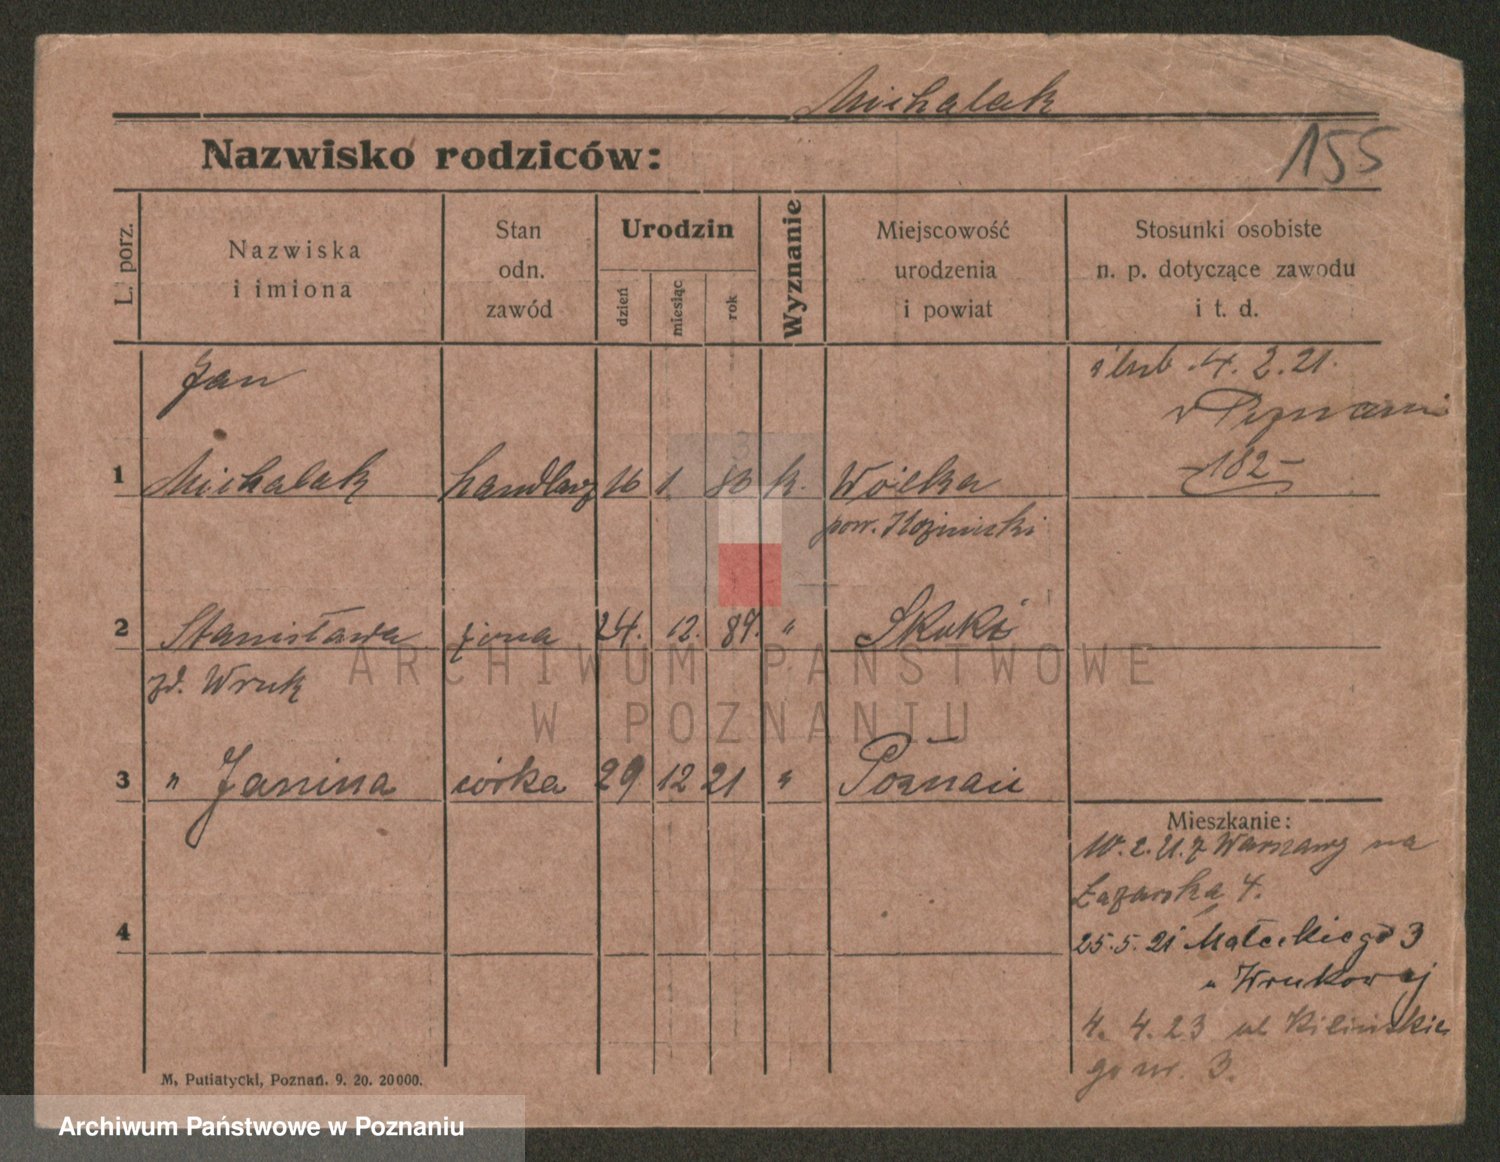 Michalak
Nazwisko rodziców:
155
L. porz.
Nazwiska
i imiona
Stan
odn.
zawód
Urodzin
dzień
miesiąc
rok
Wyznanie
Miejscowość
urodzenia
i powiat
Stosunki osobiste
n. p. dotyczące zawodu
i t. d.
Jan
ślub 4. 2. 21.
w Poznaniu
1 Michalak handlarz 16 1 k. Wólka
-182-
pow.
2 Stanisława żona 24. 12. 89. " Skoki
zd. Wruk
3 " Janina córka 29 12 21 " Poznań
Mieszkanie:
10. 2. 21. z Warszawy na
Łazarska 4.
4
25. 5. 21 Małeckiego 3
u Wrukowej
4. 4. 23 ul Kilińskie
go nr. 3.
M, Putiatycki, Poznań. 9. 20. 20000.
ARCHIWUM PAŃSTWOWE
W POZNANIU
Archiwum Państwowe w Poznaniu